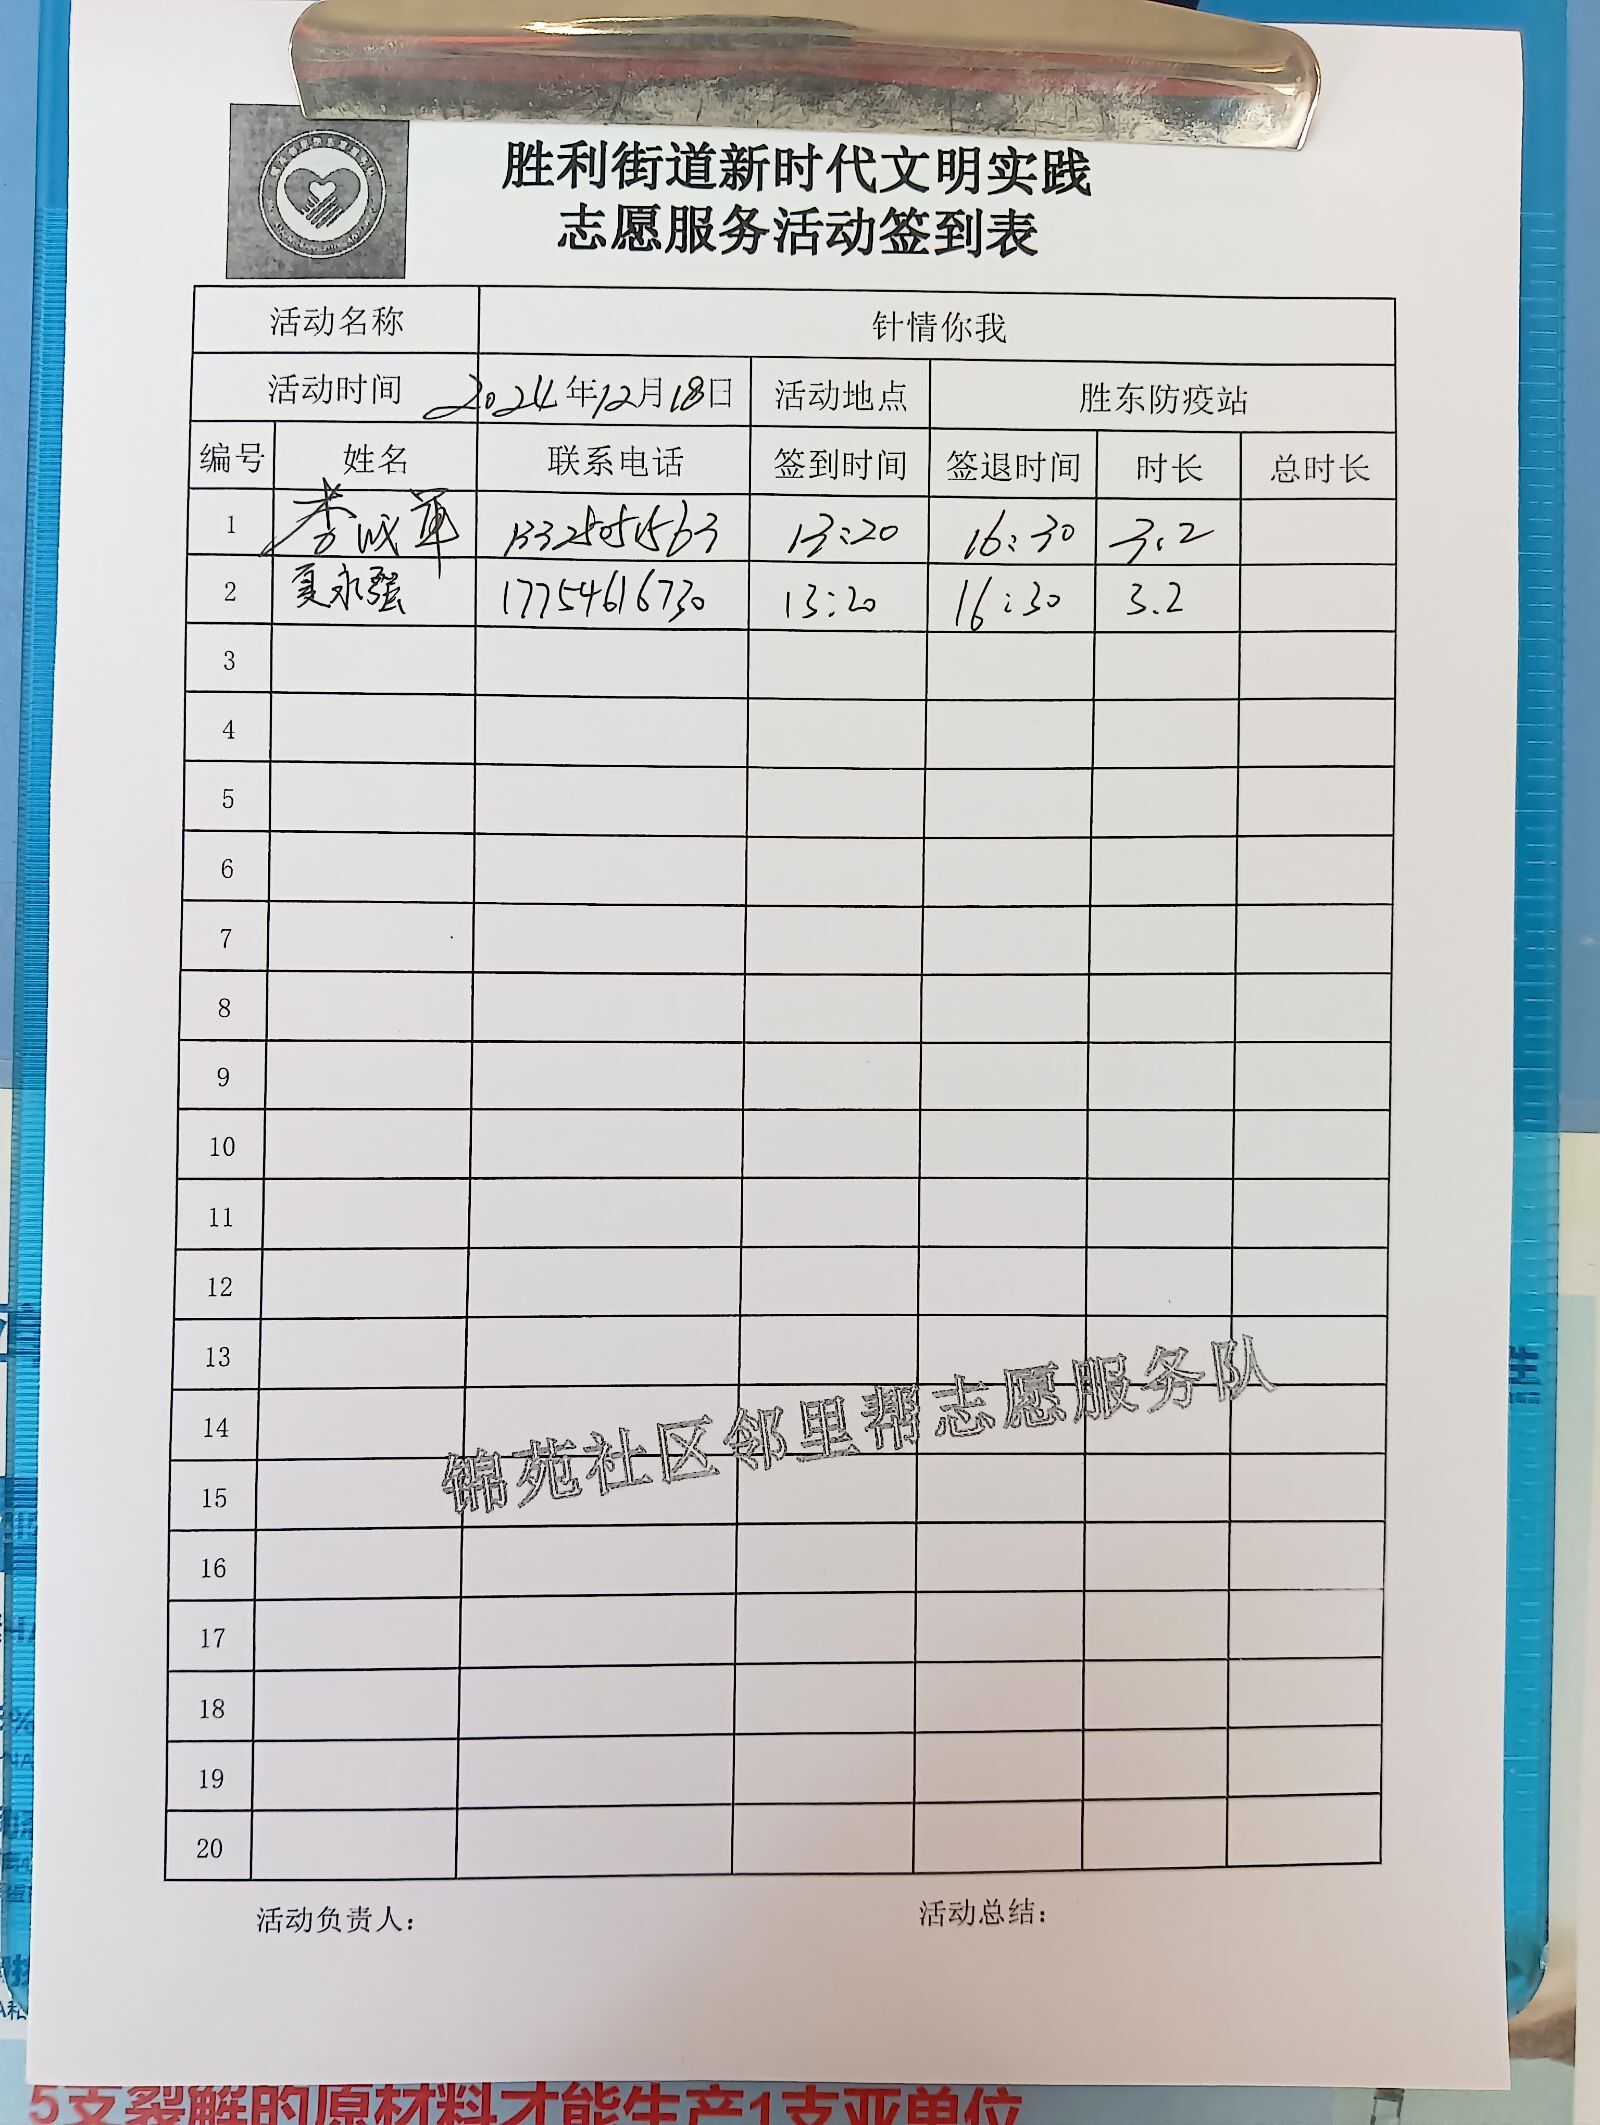 胜利街道新时代文明实践
志愿服务活动签到表
活动名称 针情你我
活动时间 2024年12月18日 活动地点 胜东防疫站
编号 姓名 联系电话 签到时间 签退时间 时长 总时长
1 李成军 13325051563 13:20 16:30 3.2
2 夏永强 17754616730 13:20 16:30 3.2
3
4
5
6
7
8
9
10
11
12
13
14
15
16
17
18
19
20
锦苑社区邻里帮志愿服务队
活动负责人： 活动总结：
5支裂解的原材料才能生产1支亚单位